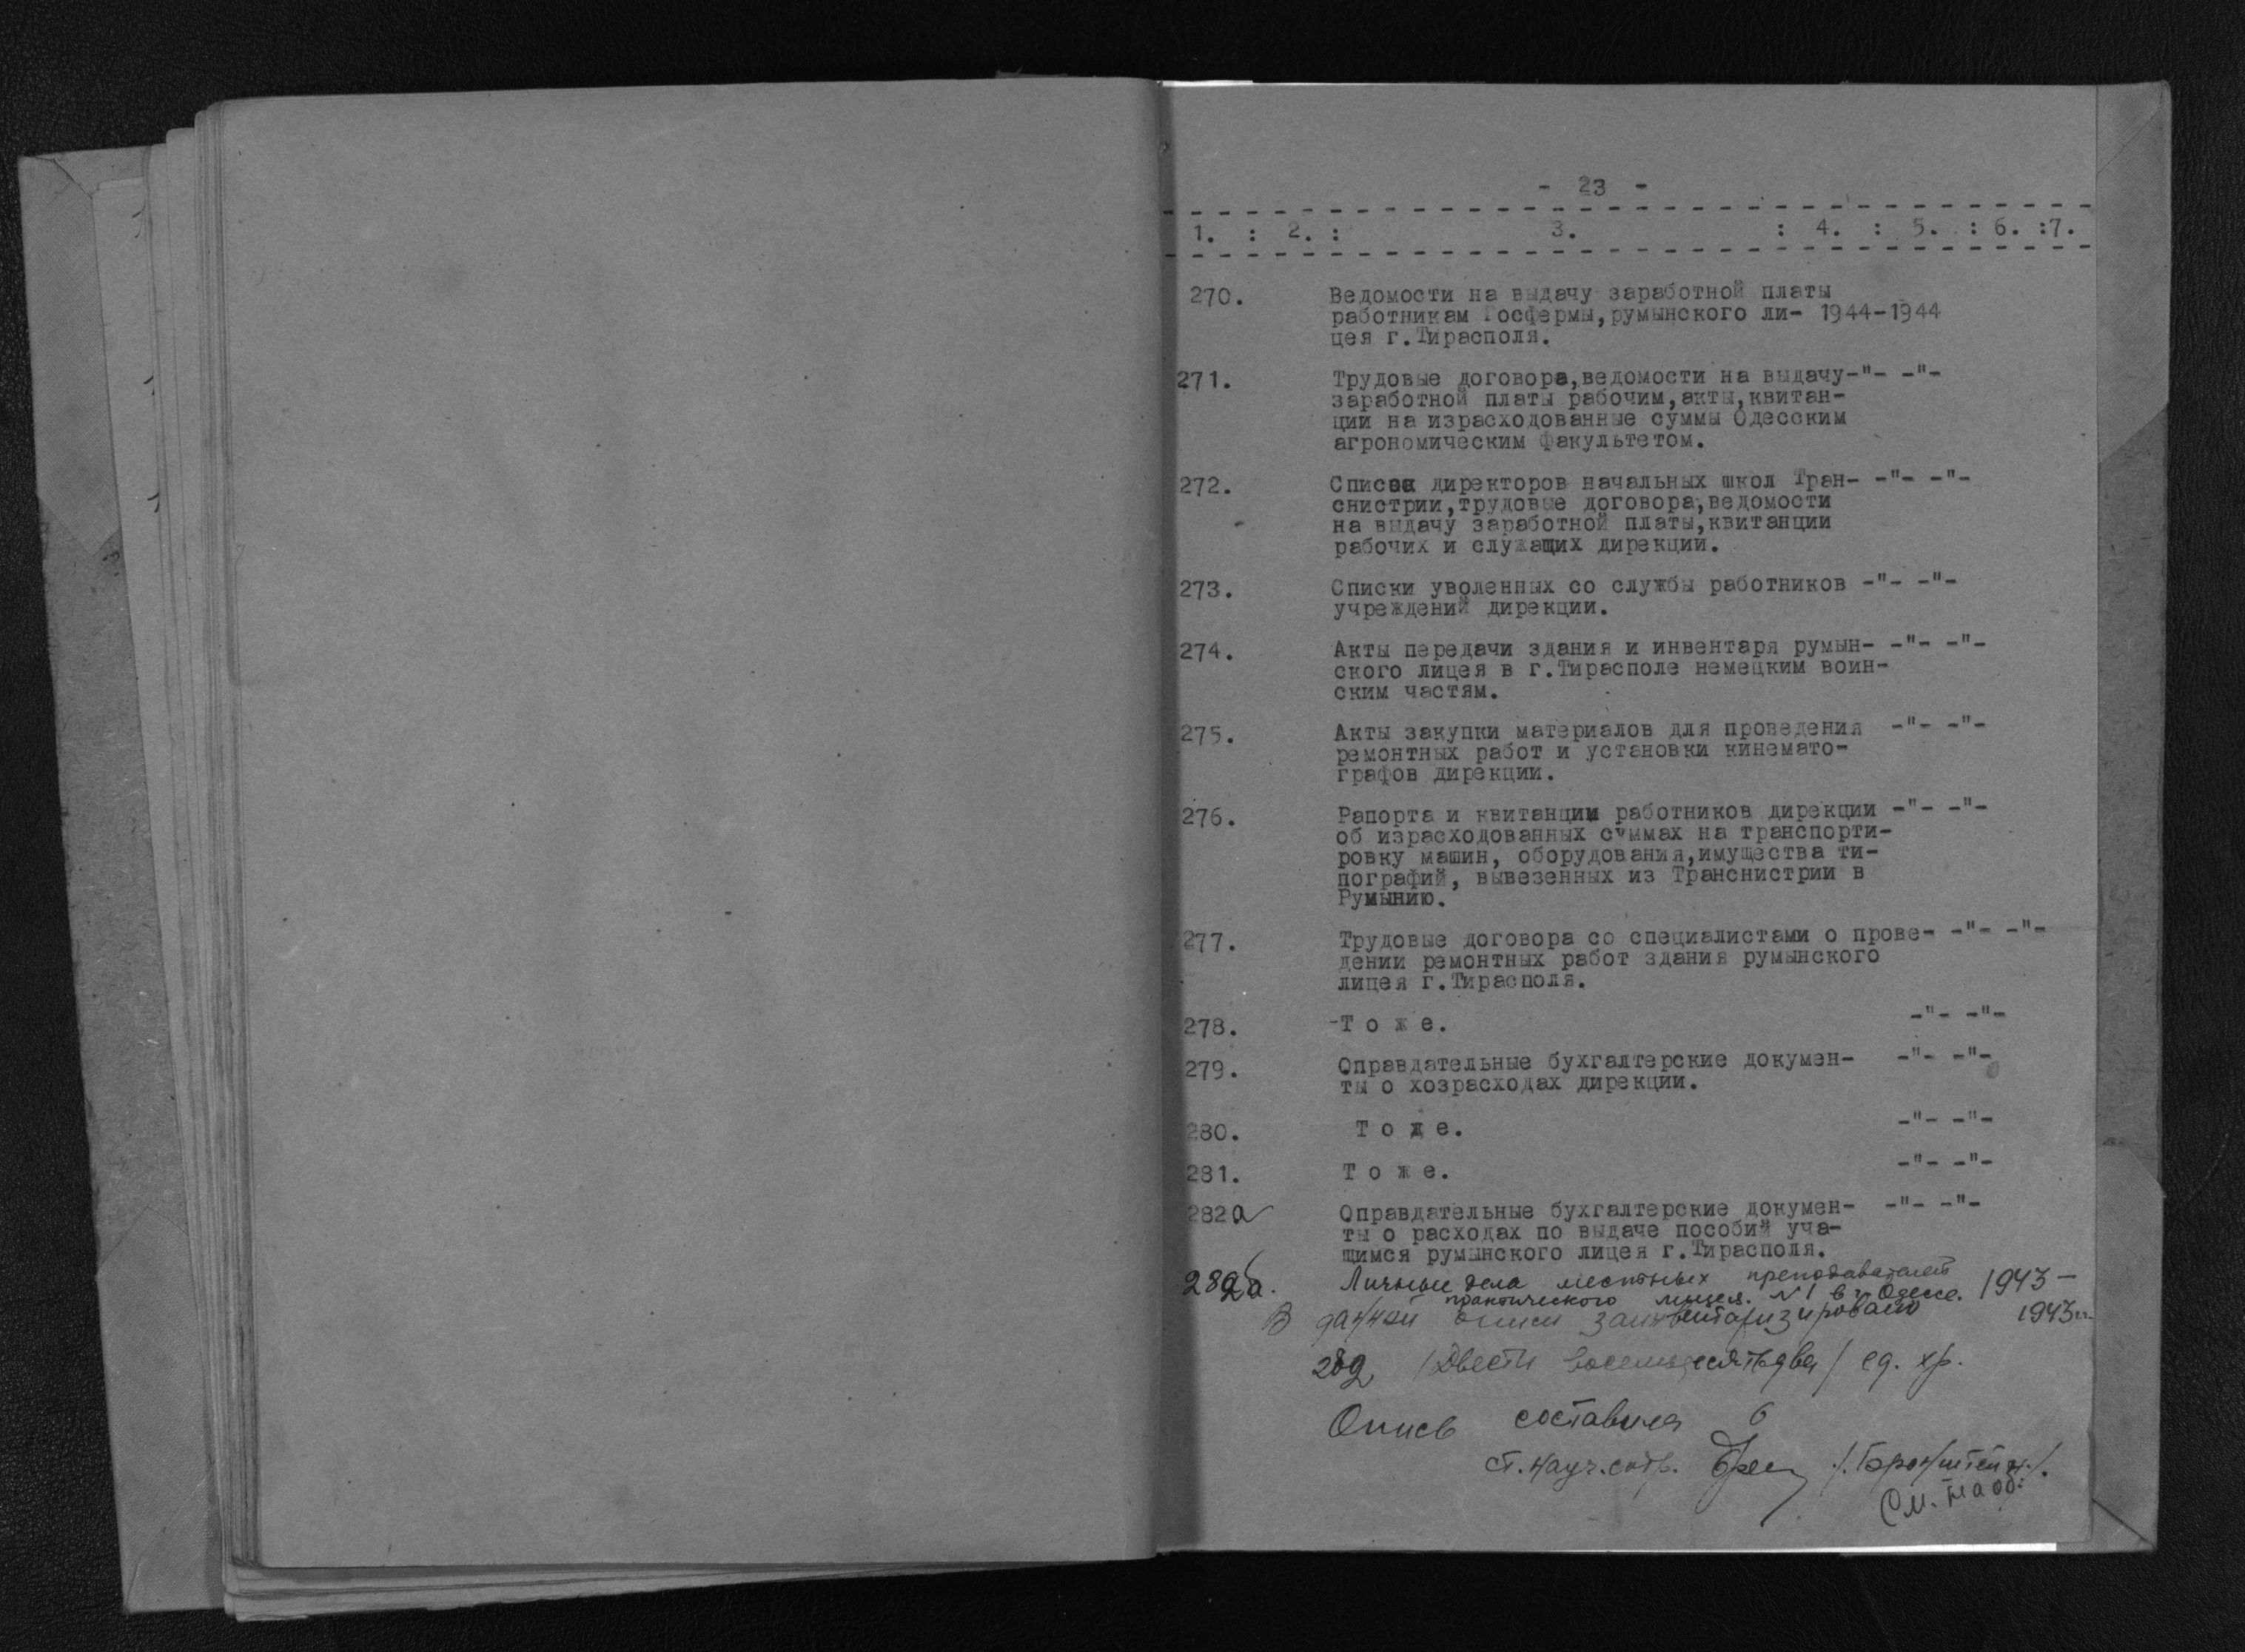 - 23 -
1. : 2. : 3. : 4. : 5. : 6. :7.
270. Ведомости на выдачу заработной платы
работникам Госфермы,румынского ли- 1944-1944
цея г.Тирасполя.
271. Трудовые договора,ведомости на выдачу-"- -"-
заработной платы рабочим,акты,квитан-
ции на израсходованные суммы Одесским
агрономическим факультетом.
272. Списки директоров начальных школ Тран- -"- -"-
снистрии,трудовые договора,ведомости
на выдачу заработной платы,квитанции
рабочих и служащих дирекции.
273. Списки уволенных со службы работников -"- -"-
учреждений дирекции.
274. Акты передачи здания и инвентаря румын- -"- -"-
ского лицея в г.Тирасполе немецким воин-
ским частям.
275. Акты закупки материалов для проведения -"- -"-
ремонтных работ и установки кинемато-
графов дирекции.
276. Рапорта и квитанции работников дирекции -"- -"-
об израсходованных суммах на транспорти-
ровку машин, оборудования,имущества ти-
пографий, вывезенных из Транснистрии в
Румынию.
277. Трудовые договора со специалистами о прове- -"- -"-
дении ремонтных работ здания румынского
лицея г.Тирасполя.
278. -Т о ж е. -"- -"-
279. Оправдательные бухгалтерские докумен- -"- -"-
ты о хозрасходах дирекции.
280. Т о ж е. -"- -"-
281. Т о ж е. -"- -"-
282а Оправдательные бухгалтерские докумен- -"- -"-
ты о расходах по выдаче пособий уча-
щимся румынского лицея г.Тирасполя.
282б. Личные дела местных преподавателей 1943-
практического лицея. N 1 в г. Одессе. 1943 гг.
В данной описи заинвентаризировано
282 /Двести восемьдесят два/ ед. хр.
Опись составила
ст. науч. сотр. /.Бронштейн./.
См. на об.